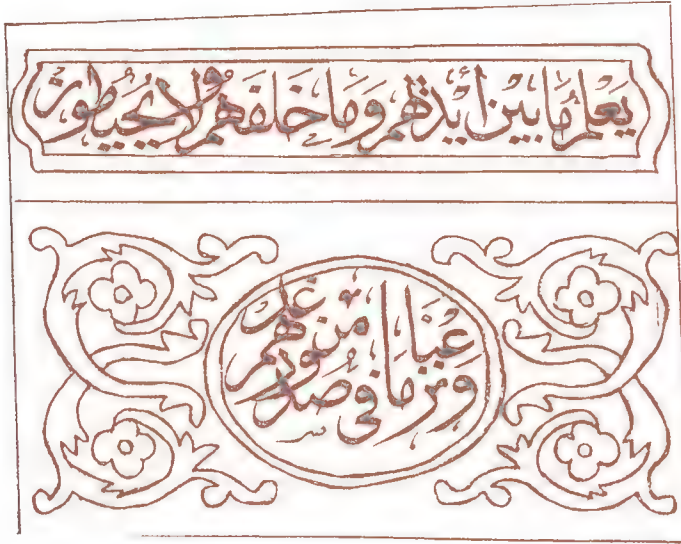 يَعْلَمُ مَا بَيْنَ أَيْدِيهِمْ وَمَا خَلْفَهُمْ وَلَا يُحِيطُونَ
ونزعنا ما في صدورهم من غل